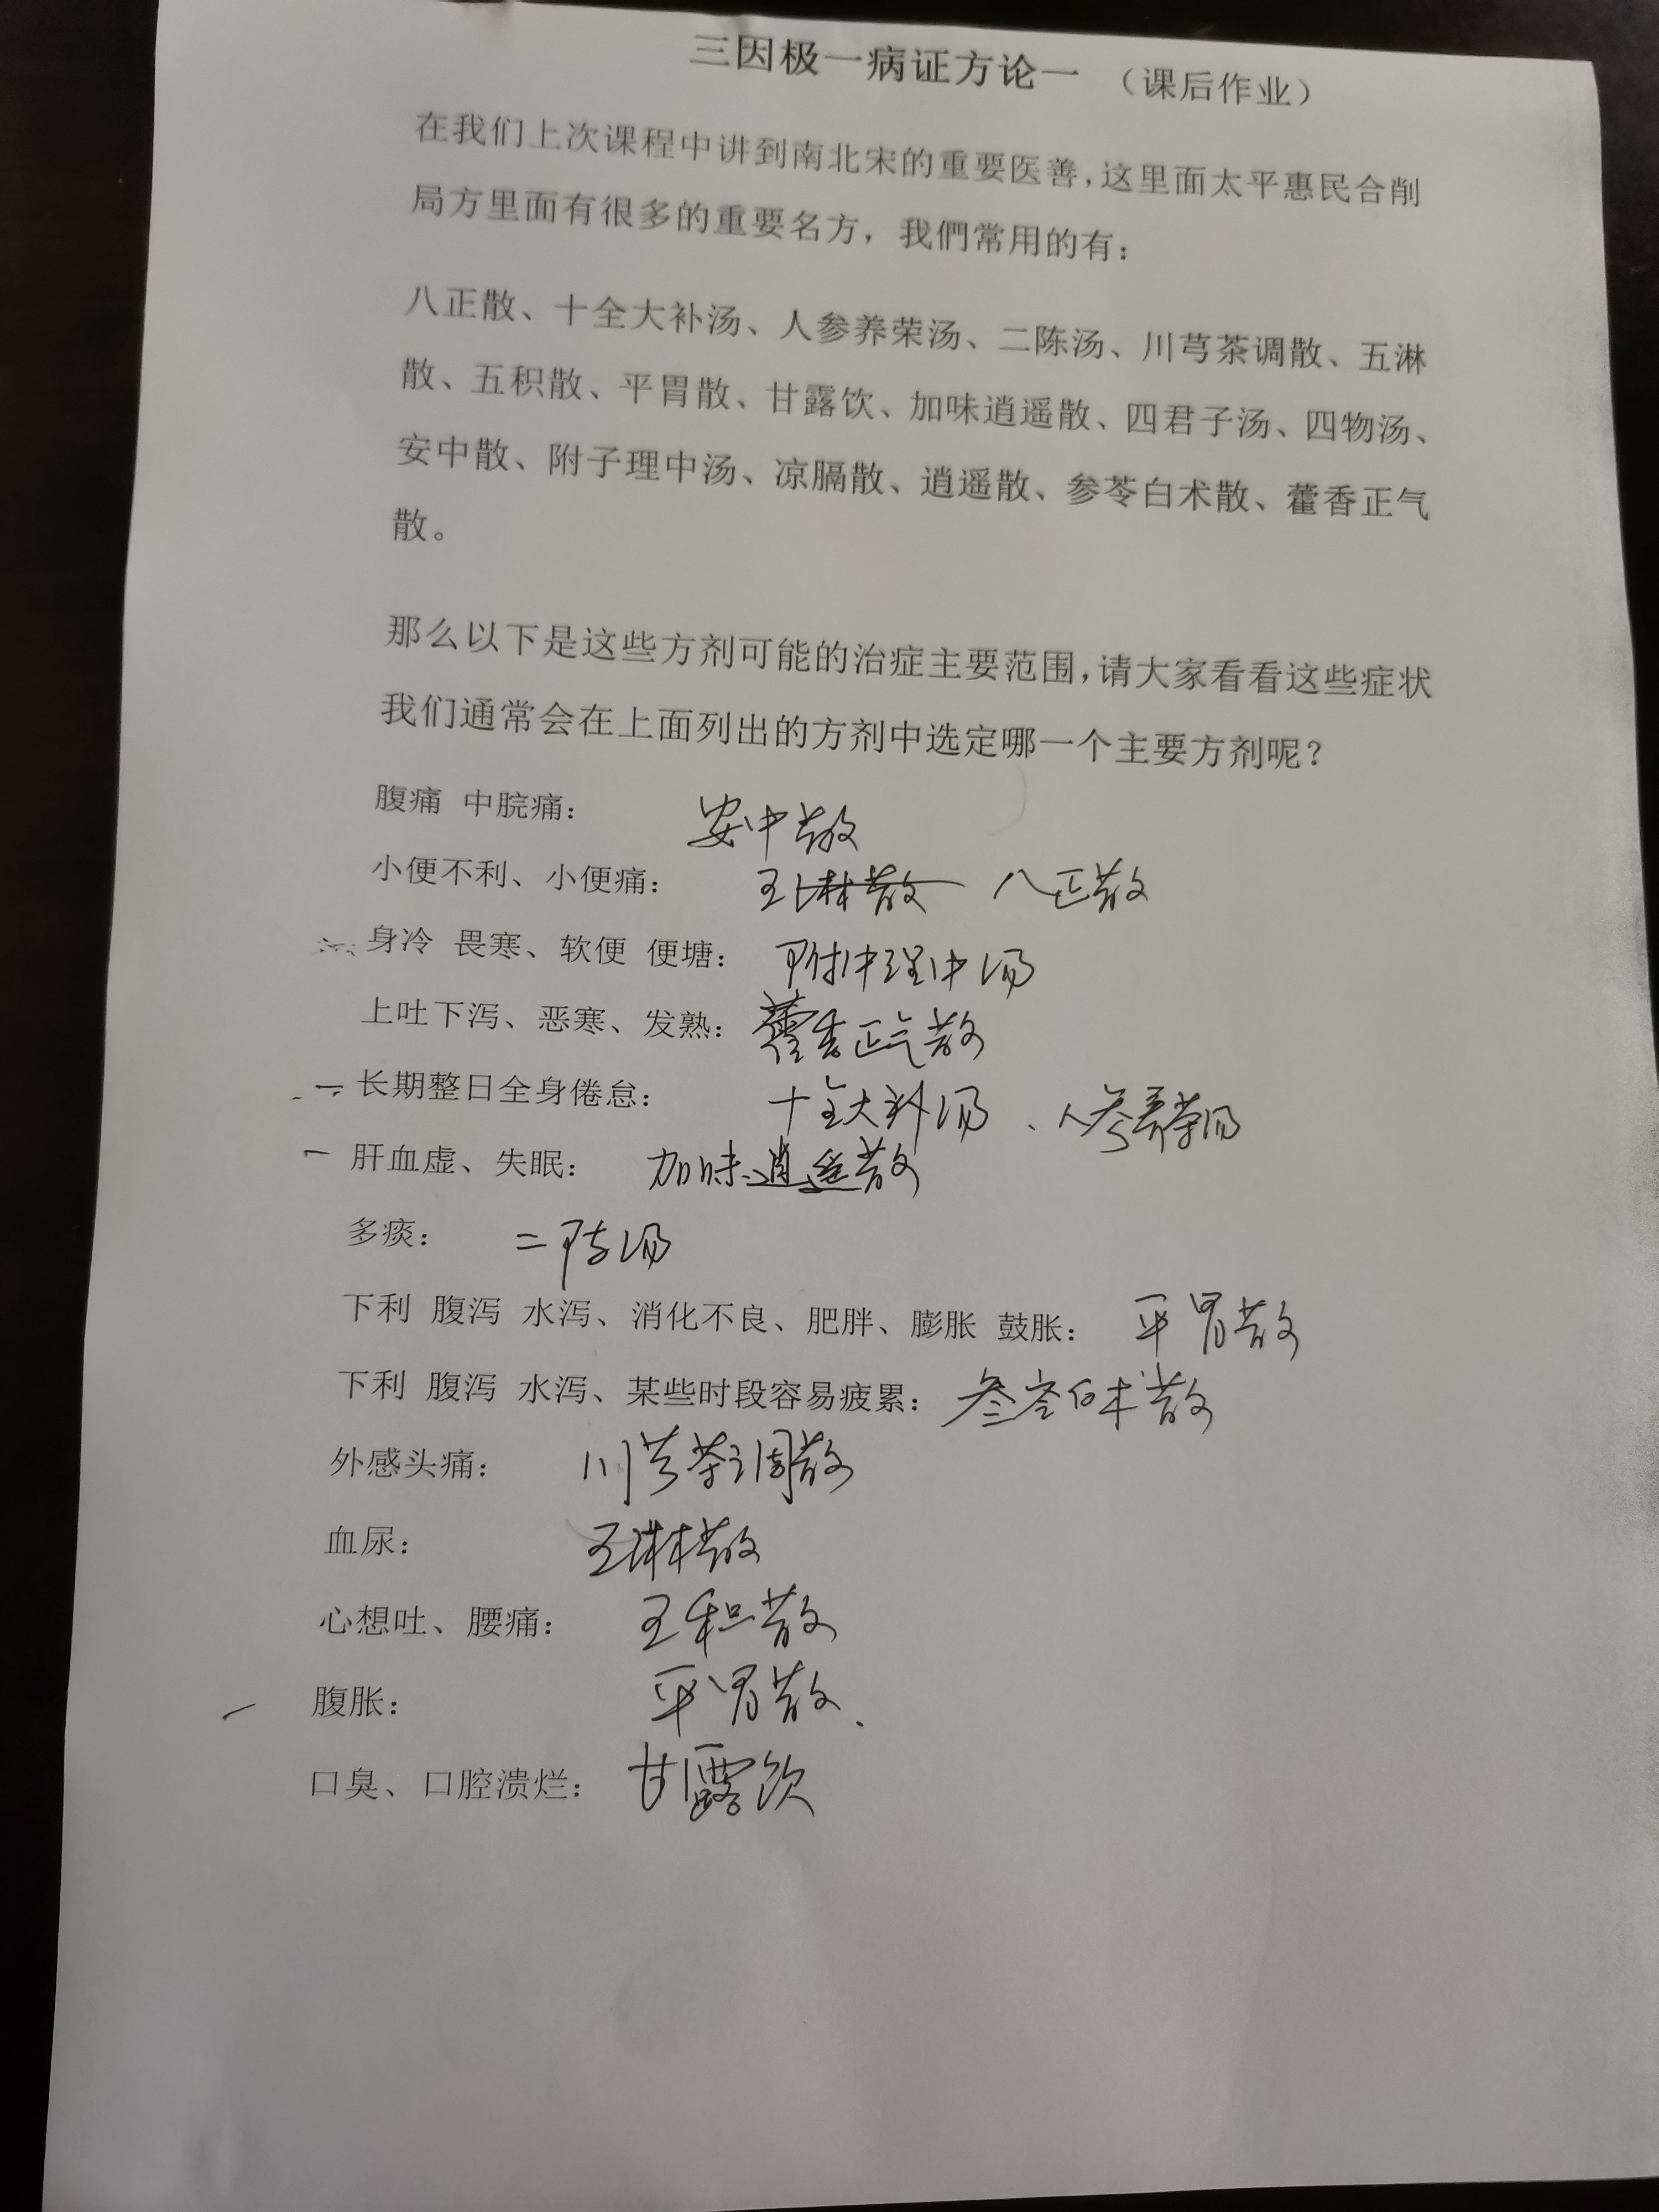 三因极一病证方论一 （课后作业）
在我们上次课程中讲到南北宋的重要医善，这里面太平惠民合削
局方里面有很多的重要名方，我們常用的有：
八正散、十全大补汤、人参养荣汤、二陈汤、川芎茶调散、五淋
散、五积散、平胃散、甘露饮、加味逍遥散、四君子汤、四物汤、
安中散、附子理中汤、凉膈散、逍遥散、参苓白术散、藿香正气
散。
那么以下是这些方剂可能的治症主要范围，请大家看看这些症状
我们通常会在上面列出的方剂中选定哪一个主要方剂呢？
腹痛 中脘痛： 安中散
小便不利、小便痛： 五淋散 八正散
身冷 畏寒、软便 便塘： 附中理中汤
上吐下泻、恶寒、发熟： 藿香正气散
长期整日全身倦怠： 十全大补汤、人参养荣汤
肝血虚、失眠： 加味逍遥散
多痰： 二陈汤
下利 腹泻 水泻、消化不良、肥胖、膨胀 鼓胀： 平胃散
下利 腹泻 水泻、某些时段容易疲累： 参苓白术散
外感头痛： 川芎茶调散
血尿： 五淋散
心想吐、腰痛： 五积散
腹胀： 平胃散.
口臭、口腔溃烂： 甘露饮